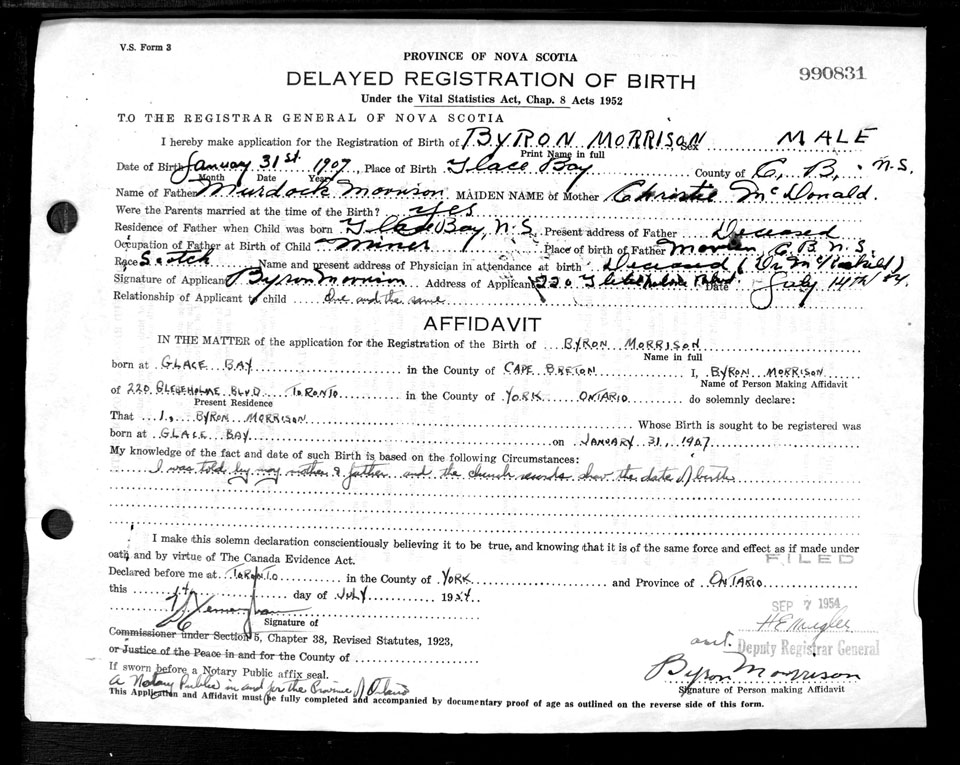 V.S. Form 3
PROVINCE OF NOVA SCOTIA
990831
DELAYED REGISTRATION OF BIRTH
Under the Vital Statistics Act, Chap. 8 Acts 1952
TO THE REGISTRAR GENERAL OF NOVA SCOTIA
I hereby make application for the Registration of Birth of BYRON MORRISON Sex MALE
Print Name in full
Date of Birth January 31st 1907, Place of Birth Glace Bay County of C. B., N.S.
Month Date Year
Name of Father Murdock Morrison MAIDEN NAME of Mother Christie McDonald.
Were the Parents married at the time of the Birth? Yes
Residence of Father when Child was born Glace Bay, N.S. Present address of Father Deceased
Occupation of Father at Birth of Child Miner Place of birth of Father C. B. N.S.
Race Scotch Name and present address of Physician in attendance at birth Deceased (Dr.
Signature of Applicant Byron Morrison Address of Applicant 220 Glebeholme Blvd. Date July 14TH 54.
Relationship of Applicant to child One and the same
AFFIDAVIT
IN THE MATTER of the application for the Registration of the Birth of BYRON MORRISON
Name in full
born at GLACE BAY in the County of CAPE BRETON I, BYRON MORRISON
Name of Person Making Affidavit
of 220 GLEBEHOLME BLVD TORONTO in the County of YORK ONTARIO do solemnly declare:
Present Residence
That I, BYRON MORRISON Whose Birth is sought to be registered was
born at GLACE BAY on JANUARY 31, 1907
My knowledge of the fact and date of such Birth is based on the following Circumstances:
I was told by my mother & father and the church records show the date of birth
I make this solemn declaration conscientiously believing it to be true, and knowing that it is of the same force and effect as if made under
oath and by virtue of The Canada Evidence Act.
FILED
Declared before me at TORONTO in the County of YORK and Province of ONTARIO
this 14 day of JULY 1954
SEP 7 1954
Signature of
Commissioner under Section 5, Chapter 38, Revised Statutes, 1923,
asst. Deputy Registrar General
or Justice of the Peace in and for the County of
Byron Morrison
If sworn before a Notary Public affix seal.
A Notary Public in and for the Province of Ontario
Signature of Person making Affidavit
This Application and Affidavit must be fully completed and accompanied by documentary proof of age as outlined on the reverse side of this form.